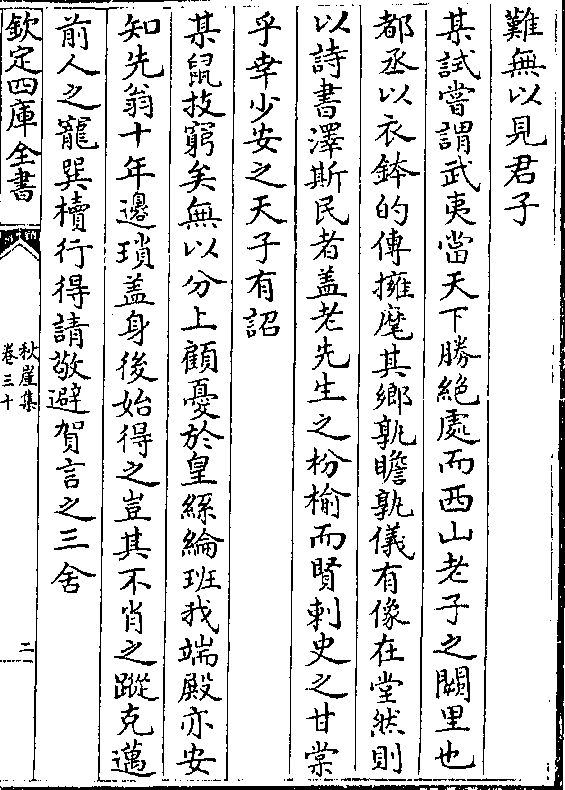 難無以見君子
某試嘗謂武夷當天下勝絶處而西山老子之闕里也
都丞以衣鉢的傳擁麾其鄉孰瞻孰儀有像在堂然則
以詩書澤斯民者盖老先生之枌榆而賢刺史之甘棠
乎幸少安之天子有詔
某鼠技窮矣無以分上顧憂於皇絲綸班我端殿亦安
知先翁十年邊瑣盖身後始得之豈其不肖之蹤克邁
前人之寵巽櫝行得請敬避賀言之三舍
欽定四庫全書
秋崖集
卷三十
二